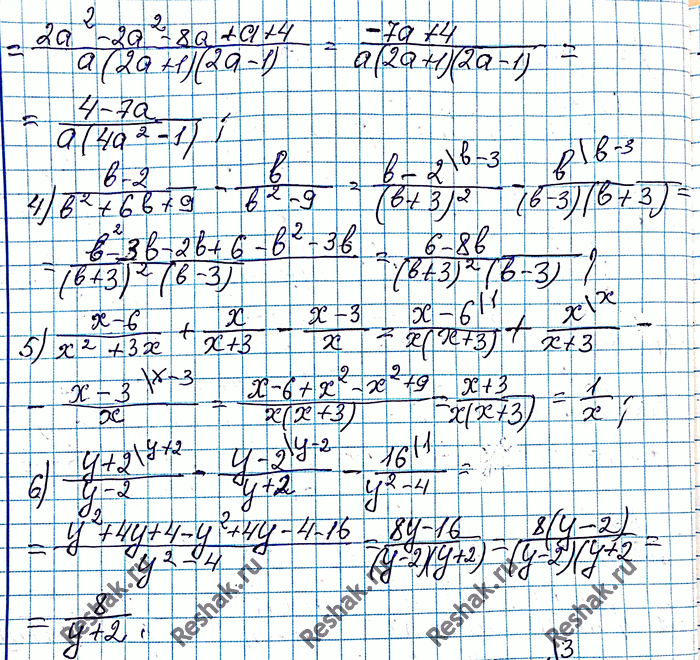 = (2a² - 2a² - 8a + a + 4)/(a(2a+1)(2a-1)) = (-7a + 4)/(a(2a+1)(2a-1)) =
= (4 - 7a)/(a(4a² - 1)) ;
4) (в - 2)/(в² + 6в + 9) - в/(в² - 9) = (в - 2 \в-3)/((в+3)²) - (в \в-3)/((в-3)(в+3)) =
= (в² - 3в - 2в + 6 - в² - 3в)/((в+3)²(в-3)) = (6 - 8в)/((в+3)²(в-3)) ;
5) (x - 6)/(x² + 3x) + x/(x+3) - (x - 3)/x = (x - 6 \1)/(x(x+3)) + (x \x)/(x+3) -
- (x - 3 \x-3)/x = (x - 6 + x² - x² + 9)/(x(x+3)) = (x+3)/(x(x+3)) = 1/x ;
6) (y+2 \y+2)/(y-2) - (y-2 \y-2)/(y+2) - (16 \1)/(y² - 4) =
= (y² + 4y + 4 - y² + 4y - 4 - 16)/(y² - 4) = (8y - 16)/((y-2)(y+2)) = (8(y-2))/((y-2)(y+2 =
= 8/(y+2) ;
Reshak.ru Reshak.ru Reshak.ru Reshak.ru Reshak.ru